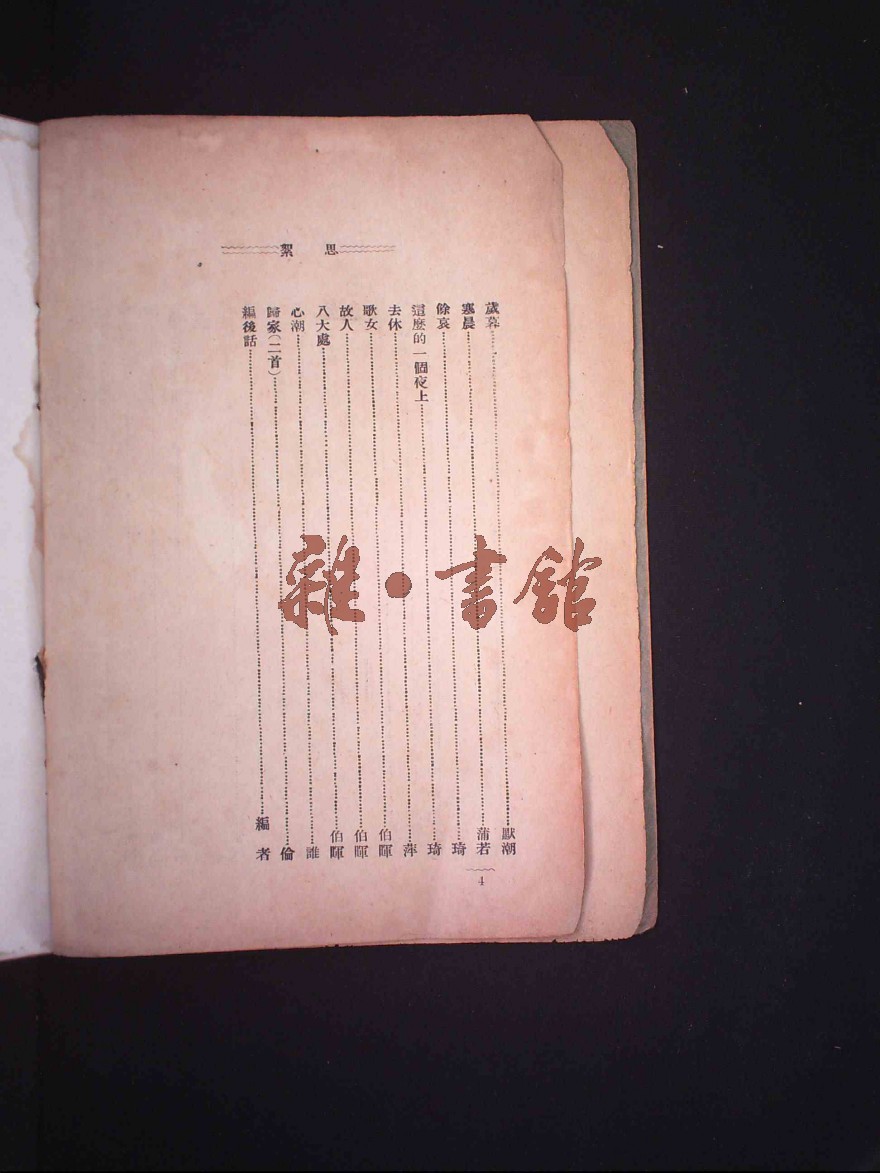 思絮
歲暮……潮
寒晨……蒲若
餘哀……琦
這麼的一個夜上……琦
去休……萍
歌女……伯暉
故人……伯暉
八大處……伯暉
心潮……誰
歸家(二首)……倫
編後話……編者
4
雜·書館